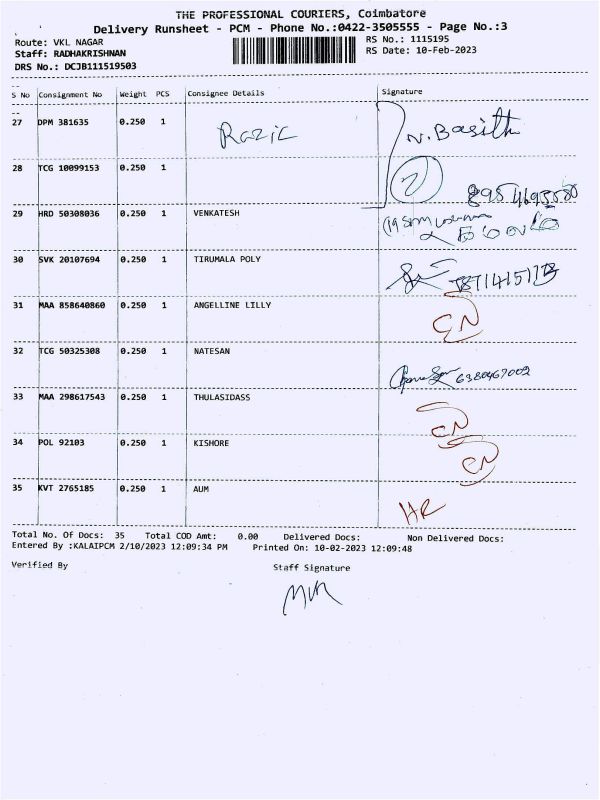 THE PROFESSIONAL COURIERS, Coimbatore
Delivery Runsheet - PCM - Phone No.:0422-3505555 - Page No.:3
Route: VKL NAGAR
RS No.: 1115195
Staff: RADHAKRISHNAN
RS Date: 10-Feb-2023
DRS No.: DCJB111519503
S No Consignment No Weight PCS Consignee Details Signature
27 DPM 381635 0.250 1 Razic N. Basith
28 TCG 10099153 0.250 1 2
29 HRD 50308036 0.250 1 VENKATESH
30 SVK 20107694 0.250 1 TIRUMALA POLY
31 MAA 858640860 0.250 1 ANGELLINE LILLY CN
32 TCG 50325308 0.250 1 NATESAN 6380467002
33 MAA 298617543 0.250 1 THULASIDASS CN
34 POL 92103 0.250 1 KISHORE CN
35 KVT 2765185 0.250 1 AUM HR
Total No. Of Docs: 35 Total COD Amt: 0.00 Delivered Docs: Non Delivered Docs:
Entered By :KALAIPCM 2/10/2023 12:09:34 PM Printed On: 10-02-2023 12:09:48
Verified By Staff Signature